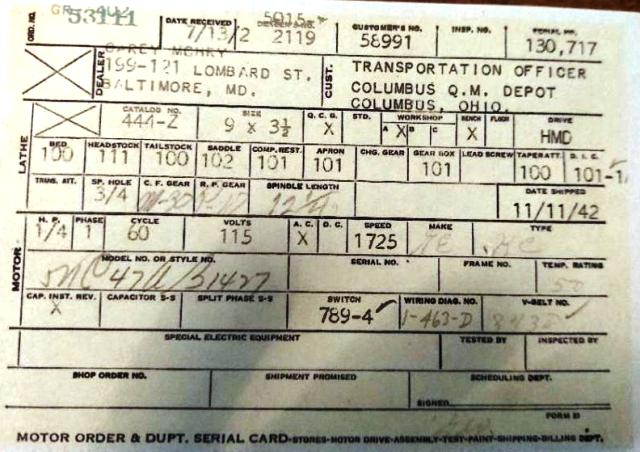 ORD. NO. 53111 DATE RECEIVED 7/13/2 2119 CUSTOMER'S NO. 58991 INSP. NO. SERIAL NO. 130,717
DEALER CAREY MCHRY
199-121 LOMBARD ST.
BALTIMORE, MD.
CUST. TRANSPORTATION OFFICER
COLUMBUS Q.M. DEPOT
COLUMBUS, OHIO.
LATHE
CATALOG NO. SIZE Q.C.G. STD. WORKSHOP BENCH FLOOR DRIVE
444-Z 9 x 3½ X A X B C X HMD
BED HEADSTOCK TAILSTOCK SADDLE COMP. REST. APRON CHG. GEAR GEAR BOX LEAD SCREW TAPER ATT. D. I. C.
100 111 100 102 101 101 101 100 101-1
TRANS. ATT. SP. HOLE C. F. GEAR R. P. GEAR SPINDLE LENGTH DATE SHIPPED
3/4 11/11/42
MOTOR
H. P. PHASE CYCLE VOLTS A. C. D. C. SPEED MAKE TYPE
1/4 1 60 115 X 1725 KC
MODEL NO. OR STYLE NO. SERIAL NO. FRAME NO. TEMP. RATING
50
CAP. INST. REV. CAPACITOR S-S SPLIT PHASE S-S SWITCH WIRING DIAG. NO. V-BELT NO.
X 789-4 1-463-D
SPECIAL ELECTRIC EQUIPMENT TESTED BY INSPECTED BY
SHOP ORDER NO. SHIPMENT PROMISED SCHEDULING DEPT.
SIGNED
FORM
MOTOR ORDER & DUPT. SERIAL CARD-STORES-MOTOR DRIVE-ASSEMBLY-TEST-PAINT-SHIPPING-BILLING DEPT.